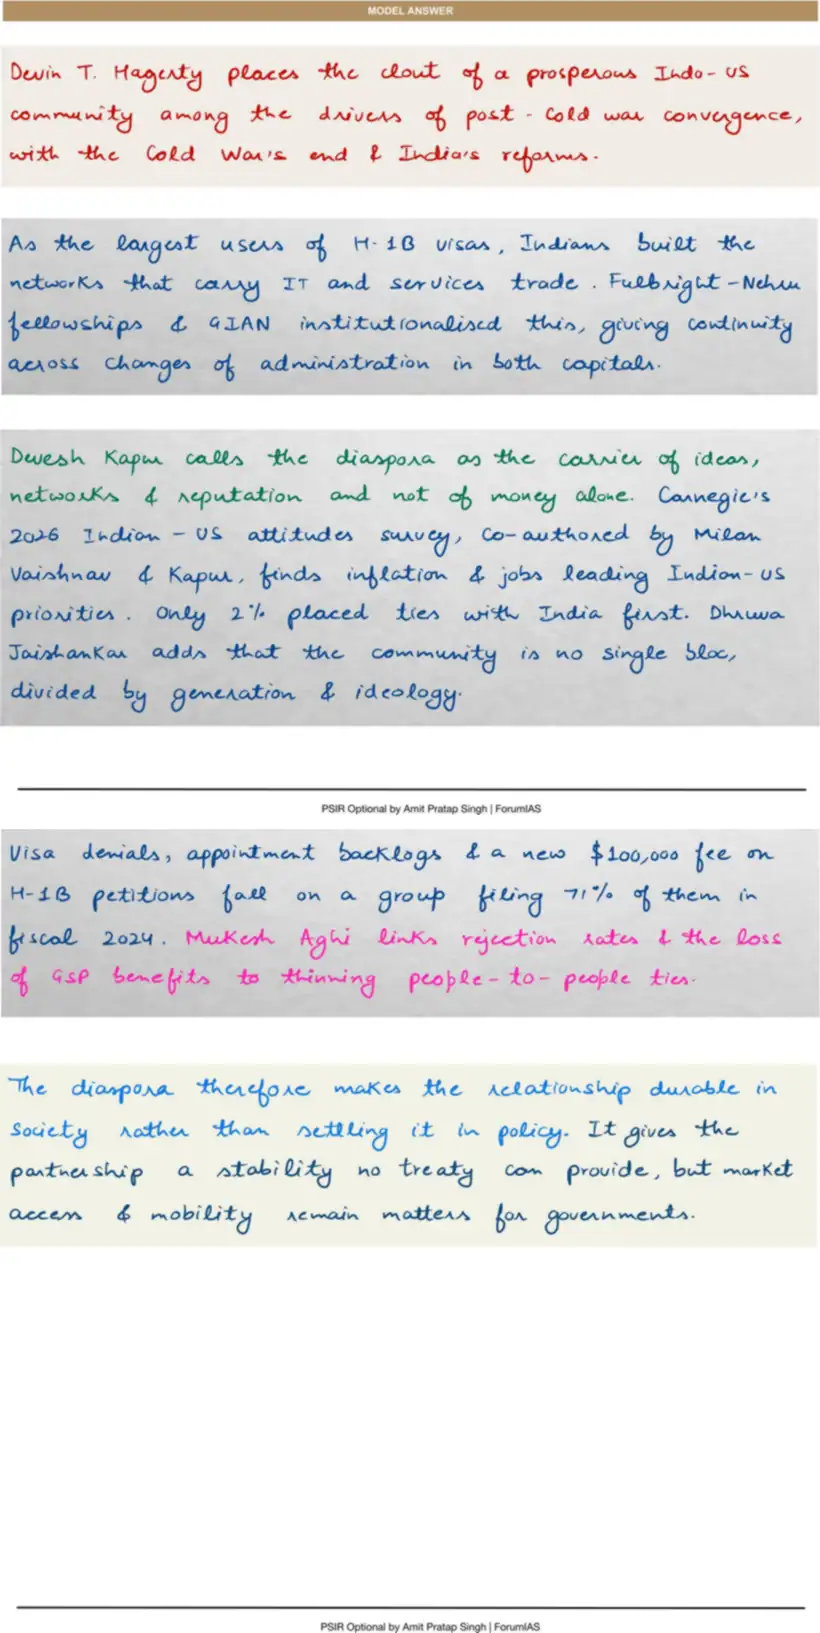 MODEL ANSWER
Devin T. Hagerty places the clout of a prosperous Indo-US
community among the drivers of post-Cold war convergence,
with the Cold War's end & India's reforms.
As the largest users of H-1B visas, Indians built the
networks that carry IT and services trade. Fulbright-Nehru
fellowships & GIAN institutionalised this, giving continuity
across changes of administration in both capitals.
Devesh Kapur calls the diaspora as the carrier of ideas,
networks & reputation and not of money alone. Carnegie's
2026 Indian-US attitudes survey, co-authored by Milan
Vaishnav & Kapur, finds inflation & jobs leading Indian-US
priorities. Only 2% placed ties with India first. Dhruva
Jaishankar adds that the community is no single bloc,
divided by generation & ideology.
PSIR Optional by Amit Pratap Singh | ForumIAS
Visa denials, appointment backlogs & a new $100,000 fee on
H-1B petitions fall on a group filing 71% of them in
fiscal 2024. Mukesh Aghi links rejection rates & the loss
of GSP benefits to thinning people-to-people ties.
The diaspora therefore makes the relationship durable in
society rather than settling it in policy. It gives the
partnership a stability no treaty can provide, but market
access & mobility remain matters for governments.
PSIR Optional by Amit Pratap Singh | ForumIAS